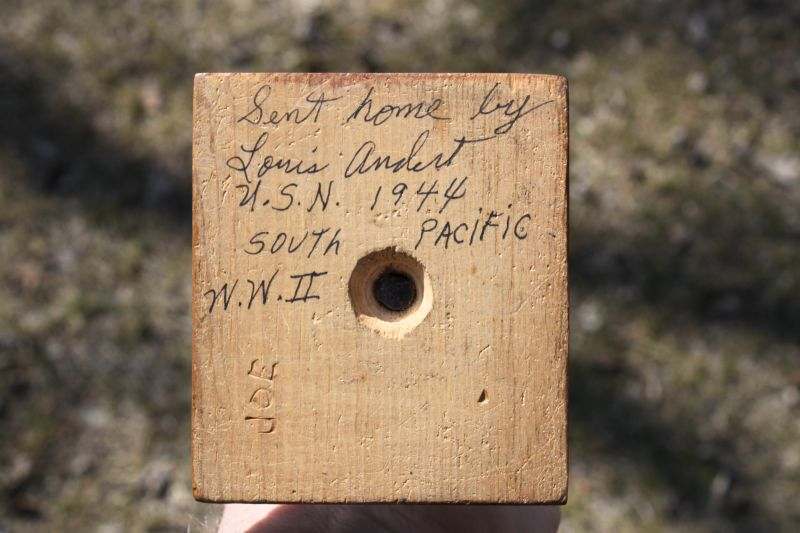 Sent home by
Louis Andert
U.S.N. 1944
SOUTH PACIFIC
W.W.II
JOE